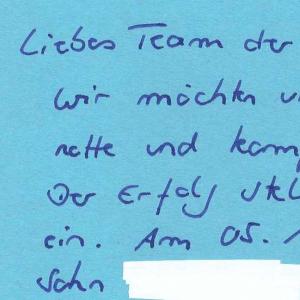 Liebes Team der
Wir möchten u
nette und kom
Der Erfolg stel
ein. Am 05. 1
Sohn